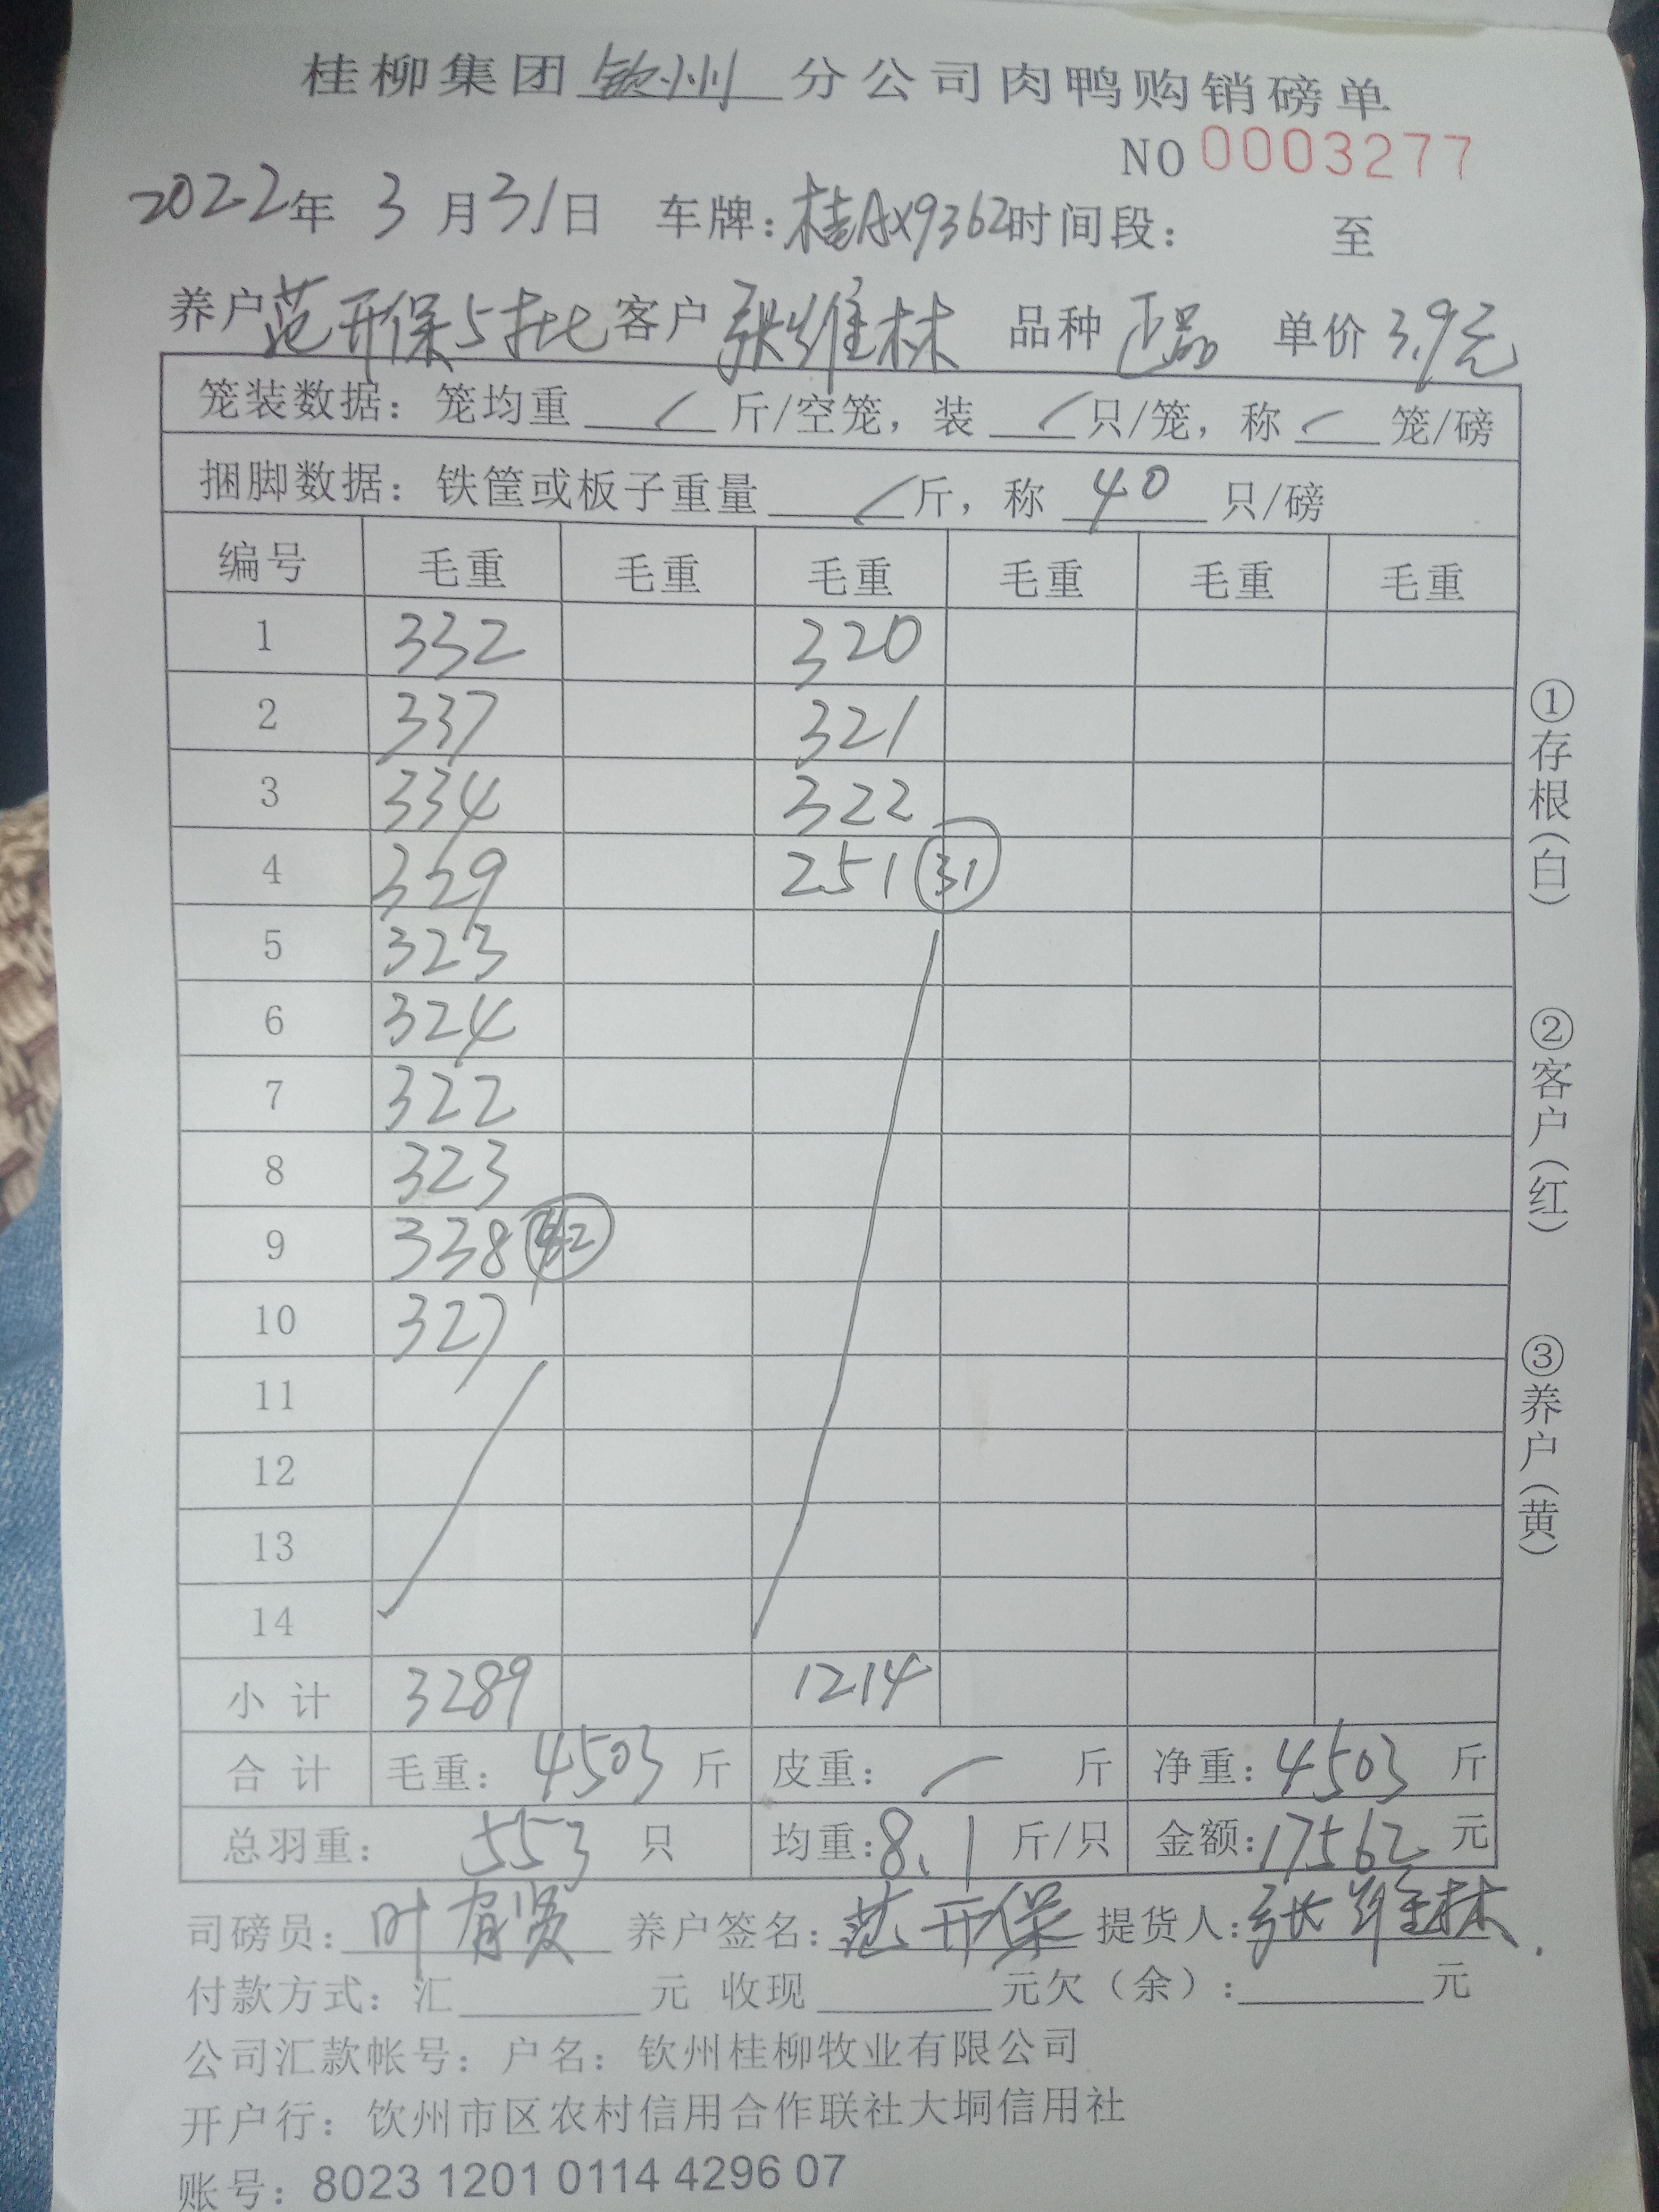 桂柳集团钦州分公司肉鸭购销磅单
NO 0003277
2022年 3月31日 车牌：桂AX9362时间段： 至
养户范开保5批 客户张维林 品种正品 单价3.9元
笼装数据：笼均重 / 斤/空笼，装 / 只/笼，称 / 笼/磅
捆脚数据：铁筐或板子重量 / 斤，称 40 只/磅
编号 毛重 毛重 毛重 毛重 毛重 毛重
1 332 320
2 337 321
3 334 322
4 329 251 31
5 323
6 324
7 322
8 323
9 338 42
10 327
11
12
13
14
小计 3289 1214
合计 毛重：4503斤 皮重： / 斤 净重：4503斤
总羽重：553只 均重：8.1斤/只 金额：17562元
司磅员：叶有贤 养户签名：范开保 提货人：张维林
付款方式：汇 元 收现 元欠（余）： 元
公司汇款帐号：户名：钦州桂柳牧业有限公司
开户行：钦州市区农村信用合作联社大垌信用社
账号：8023 1201 0114 4296 07
①存根（白）
②客户（红）
③养户（黄）